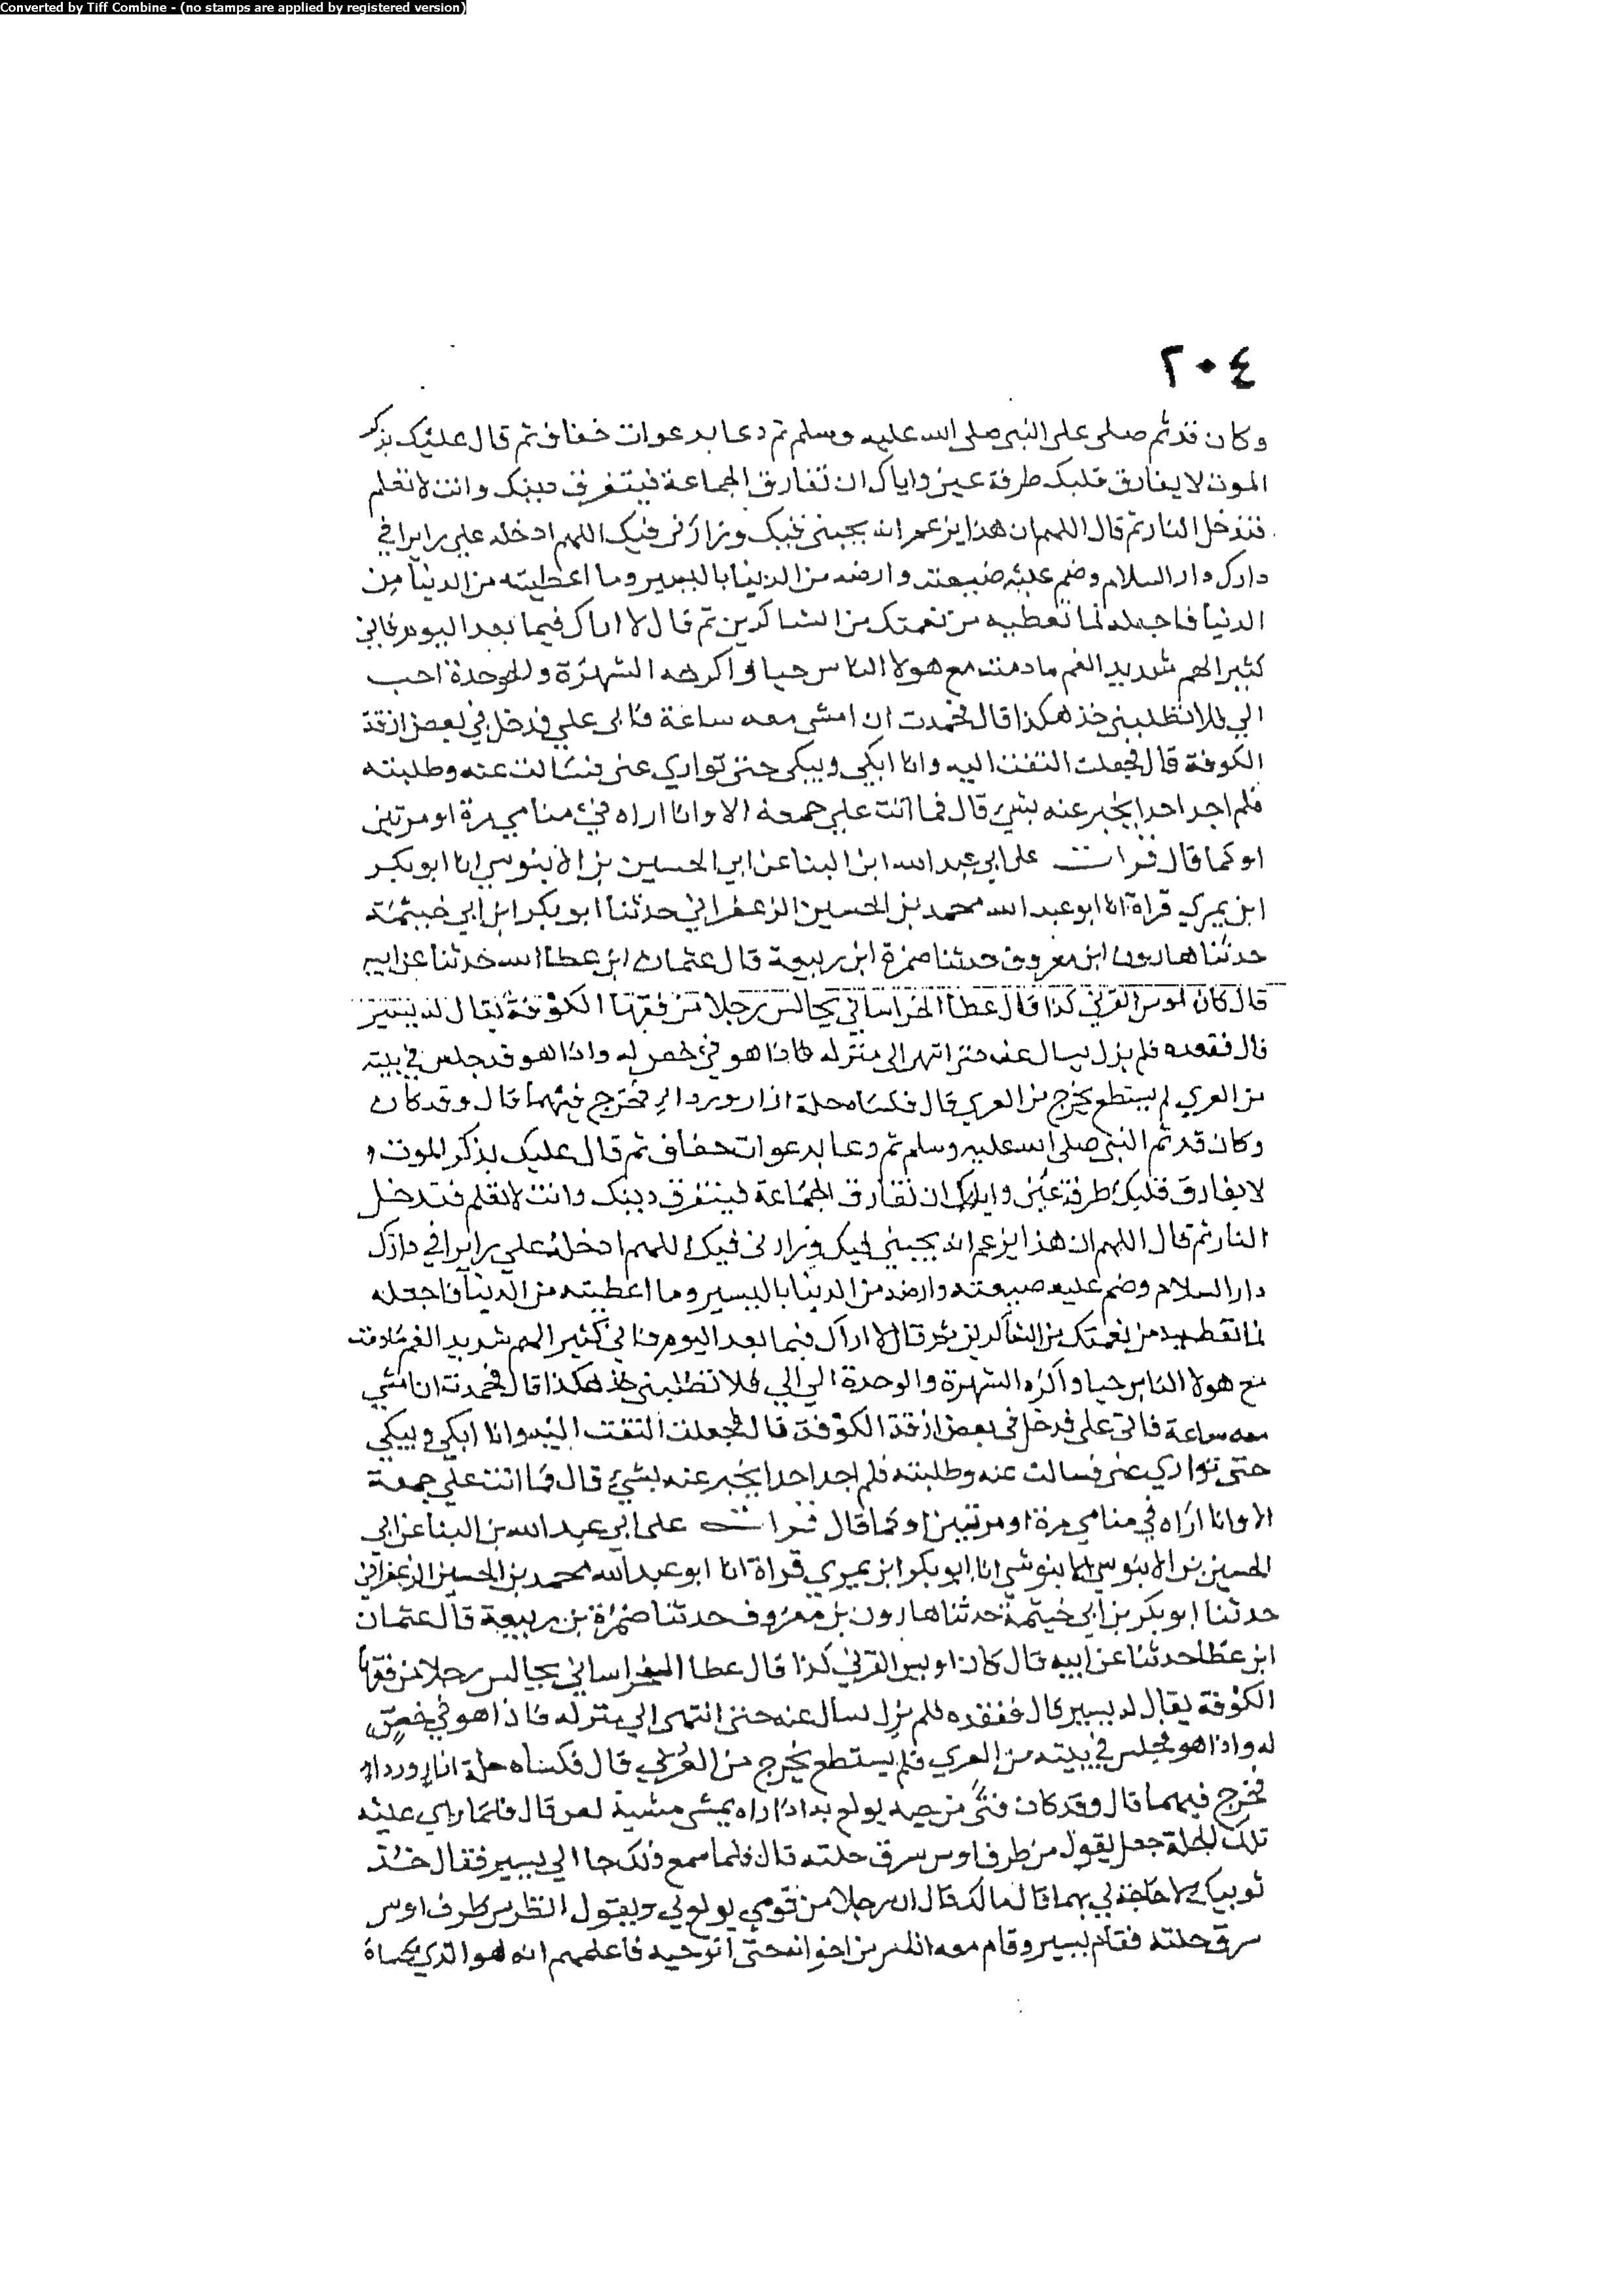 Converted by Tiff Combine - (no stamps are applied by registered version)
٢٠٤
وكان قد ثم صلى على النبى صلى الله عليه وسلم ثم دعا بدعوات خفاف ثم قال عليك بذكر
الموت لا يفارق قلبك طرفة عين واياك ان تفارق الجماعة فيتفرق دينك وانت لا تعلم
فتدخل النار ثم قال اللهم ان هذا يزعم انه يحبنى فيك وزارنى فيك اللهم ادخله علي زايرا في
دارك دار السلام وضم عليه ضيعته وارضه من الدنيا باليسير وما اعطيته من الدنيا من
الدنيا فاجعله لما تعطيه من نعمتك من الشاكرين ثم قال لا اراك فيما بعد اليوم فاني
كثير الهم شديد الغم ما دمت مع هولا الناس حيا واكره الشهرة والوحدة احب
الي فلا تطلبنى خذ هكذا قال فجهدت ان امشى معه ساعة فابى علي فدخل في بعض ازقة
الكوفة قال فجعلت التفت اليه وانا ابكي ويبكى حتى تواري عنى فسالت عنه وطلبته
فلم اجد احدا يخبر عنه بشئ قال فما اتت علي جمعة الا وانا اراه فى منامي مرة او مرتين
او كما قال قرات على ابي عبد الله ابن البنا عن ابي الحسين بن الابنوسي انا ابو بكر
ابن بيري قراة انا ابو عبد الله محمد بن الحسين الزعفراني حدثنا ابو بكر ابن ابي خيثمة
حدثنا هارون ابن معروف حدثنا ضمرة ابن ربيعة قال عثمان ابن عطا حدثنا عن ابيه
قال كان اويس القرني كذا قال عطا الخراساني يجالس رجلا من فقها الكوفة يقال له يسير
قال ففقده فلم يزل يسال عنه حتى انتهى الى منزله فاذا هو في خص له واذا هو قد جلس في بيته
من العري لم يستطع يخرج من العري قال فكساه حلة ازار وردا فخرج فيهما قال وقد كان
وكان قد ثم النبى صلى الله عليه وسلم ثم دعا بدعوات خفاف ثم قال عليك بذكر الموت
لا يفارق قلبك طرفة عين واياك ان تفارق الجماعة فيتفرق دينك وانت لا تعلم فتدخل
النار ثم قال اللهم ان هذا يزعم انه يحبني فيك وزارنى فيك اللهم ادخله علي زايرا في دارك
دار السلام وضم عليه ضيعته وارضه من الدنيا باليسير وما اعطيته من الدنيا فاجعله
لما تعطيه من نعمتك من الشاكرين ثم قال لا اراك فيما بعد اليوم فاني كثير الهم شديد الغم ما دمت
مع هولا الناس حيا واكره الشهرة والوحدة الي فلا تطلبنى خذ هكذا قال فجهدت ان امشي
معه ساعة فابى على فدخل فى بعض ازقة الكوفة قال فجعلت التفت اليه وانا ابكي ويبكي
حتى تواري عنى فسالت عنه وطلبته فلم اجد احدا يخبر عنه بشئ قال فما اتت علي جمعة
الا وانا اراه في منامي مرة او مرتين او كما قال قرات على ابي عبد الله بن البنا عن ابى
الحسين بن الابنوسي انا ابو بكر ابن بيري قراة انا ابو عبد الله محمد بن الحسين الزعفراني
حدثنا ابو بكر بن ابي خيثمة حدثنا هارون بن معروف حدثنا ضمرة بن ربيعة قال عثمان
ابن عطا حدثنا عن ابيه قال كان اويس القرني كذا قال عطا الخراساني يجالس رجلا من فقها
الكوفة يقال له يسير قال ففقده فلم يزل يسال عنه حتى انتهى الي منزله فاذا هو في خص
له واذا هو مجلس في بيته من العري فلم يستطع يخرج من العري قال فكساه حلة ازار وردا
فخرج فيهما قال وقد كان فتى من حيه يولع به اذا راه يمشى مشية قال فلما راي عليه
تلك الحلة جعل يقول من طرف اوس سرق حلته قال فلما سمع ذلك جا الي يسير فقال خذ
ثوبيك لا حاجة لي بهما قال مالك قال ان رجلا من قومي يولع لي ويقول انظر من طرف اوس
سرق حلته فقام يسير وقام معه من اخوانه حتى اتو حيه فاعلمهم انه هو الذي كساه